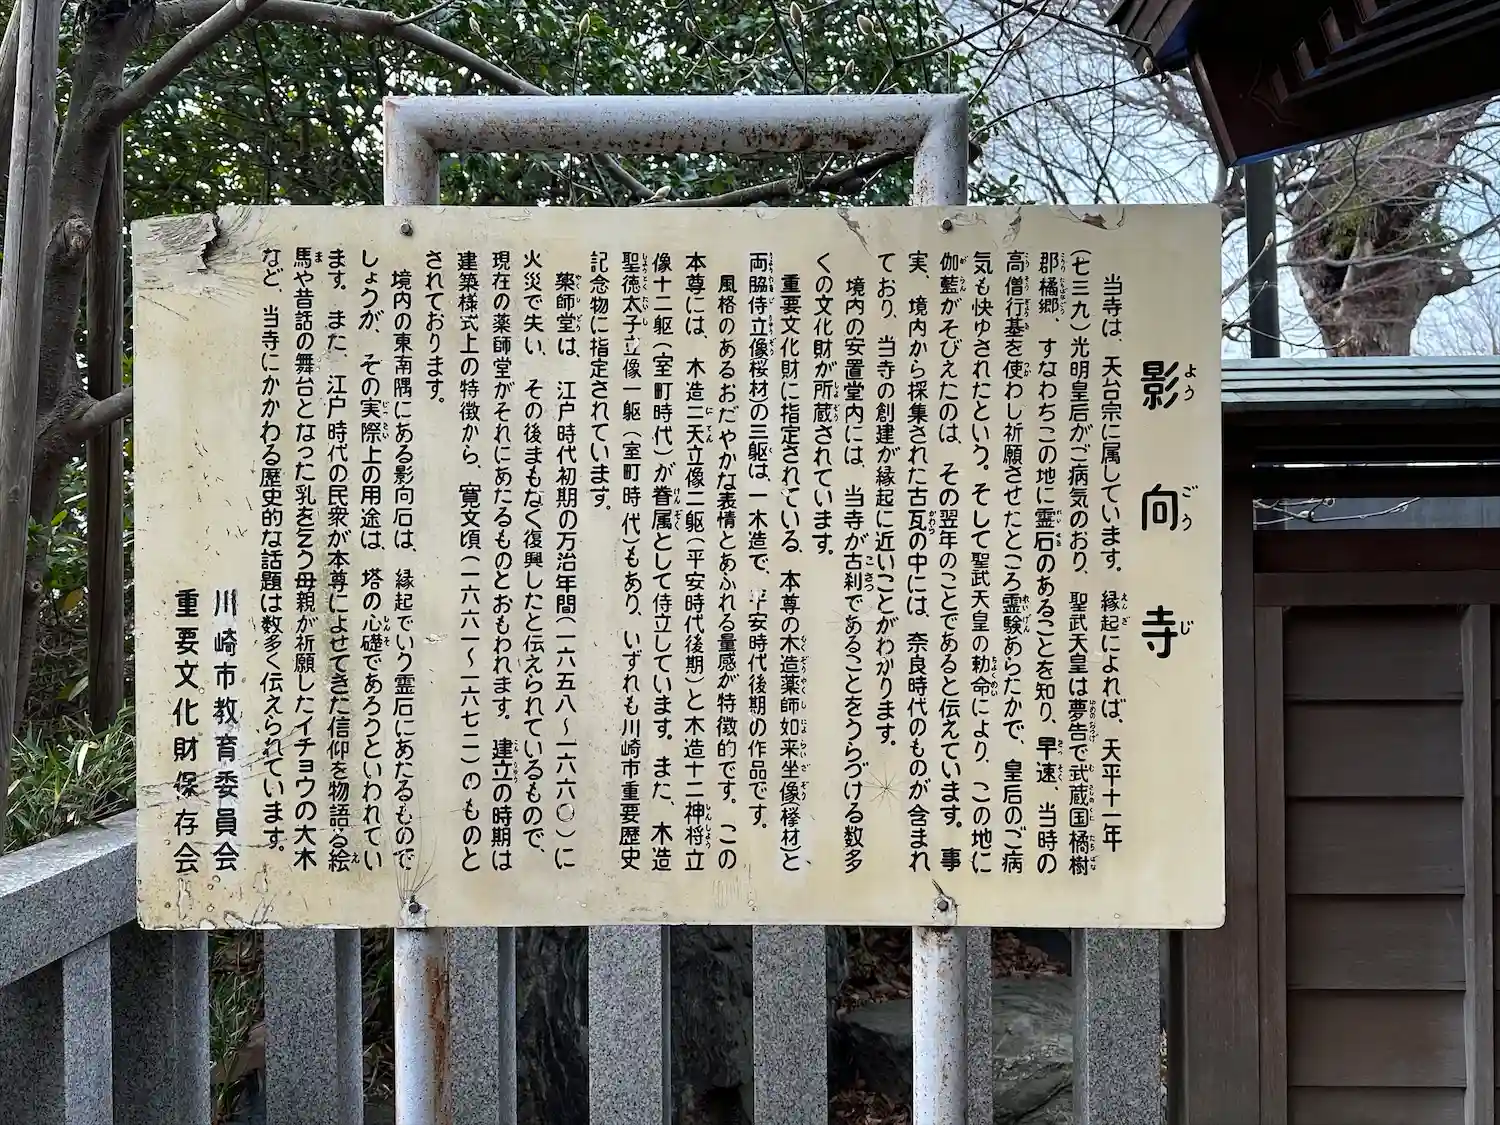 影向寺
当寺は、天台宗に属しています。縁起によれば、天平十一年
（七三九）光明皇后がご病気のおり、聖武天皇は夢告で武蔵国橘樹
郡橘郷、すなわちこの地に霊石のあることを知り、早速、当時の
高僧行基を使わし祈願させたところ霊験あらたかで、皇后のご病
気も快ゆされたという。そして聖武天皇の勅命により、この地に
伽藍がそびえたのは、その翌年のことであると伝えています。事
実、境内から採集された古瓦の中には、奈良時代のものが含まれ
ており、当寺の創建が縁起に近いことがわかります。
境内の安置堂内には、当寺が古刹であることをうらづける数多
くの文化財が所蔵されています。
重要文化財に指定されている、本尊の木造薬師如来坐像（欅材）と
両脇侍立像桜材の三躯は、一木造で、平安時代後期の作品です。
風格のあるおだやかな表情とあふれる量感が特徴的です。この
本尊には、木造二天立像二躯（平安時代後期）と木造十二神将立
像十二躯（室町時代）が眷属として侍立しています。また、木造
聖徳太子立像一躯（室町時代）もあり、いずれも川崎市重要歴史
記念物に指定されています。
薬師堂は、江戸時代初期の万治年間（一六五八〜一六六〇）に
火災で失い、その後まもなく復興したと伝えられているもので、
現在の薬師堂がそれにあたるものとおもわれます。建立の時期は
建築様式上の特徴から、寛文頃（一六六一〜一六七二）のものと
されております。
境内の東南隅にある影向石は、縁起でいう霊石にあたるもので
しょうが、その実際上の用途は、塔の心礎であろうといわれてい
ます。また、江戸時代の民衆が本尊によせてきた信仰を物語る絵
馬や昔話の舞台となった乳を乞う母親が祈願したイチョウの大木
など、当寺にかかわる歴史的な話題は数多く伝えられています。
川崎市教育委員会
重要文化財保存会